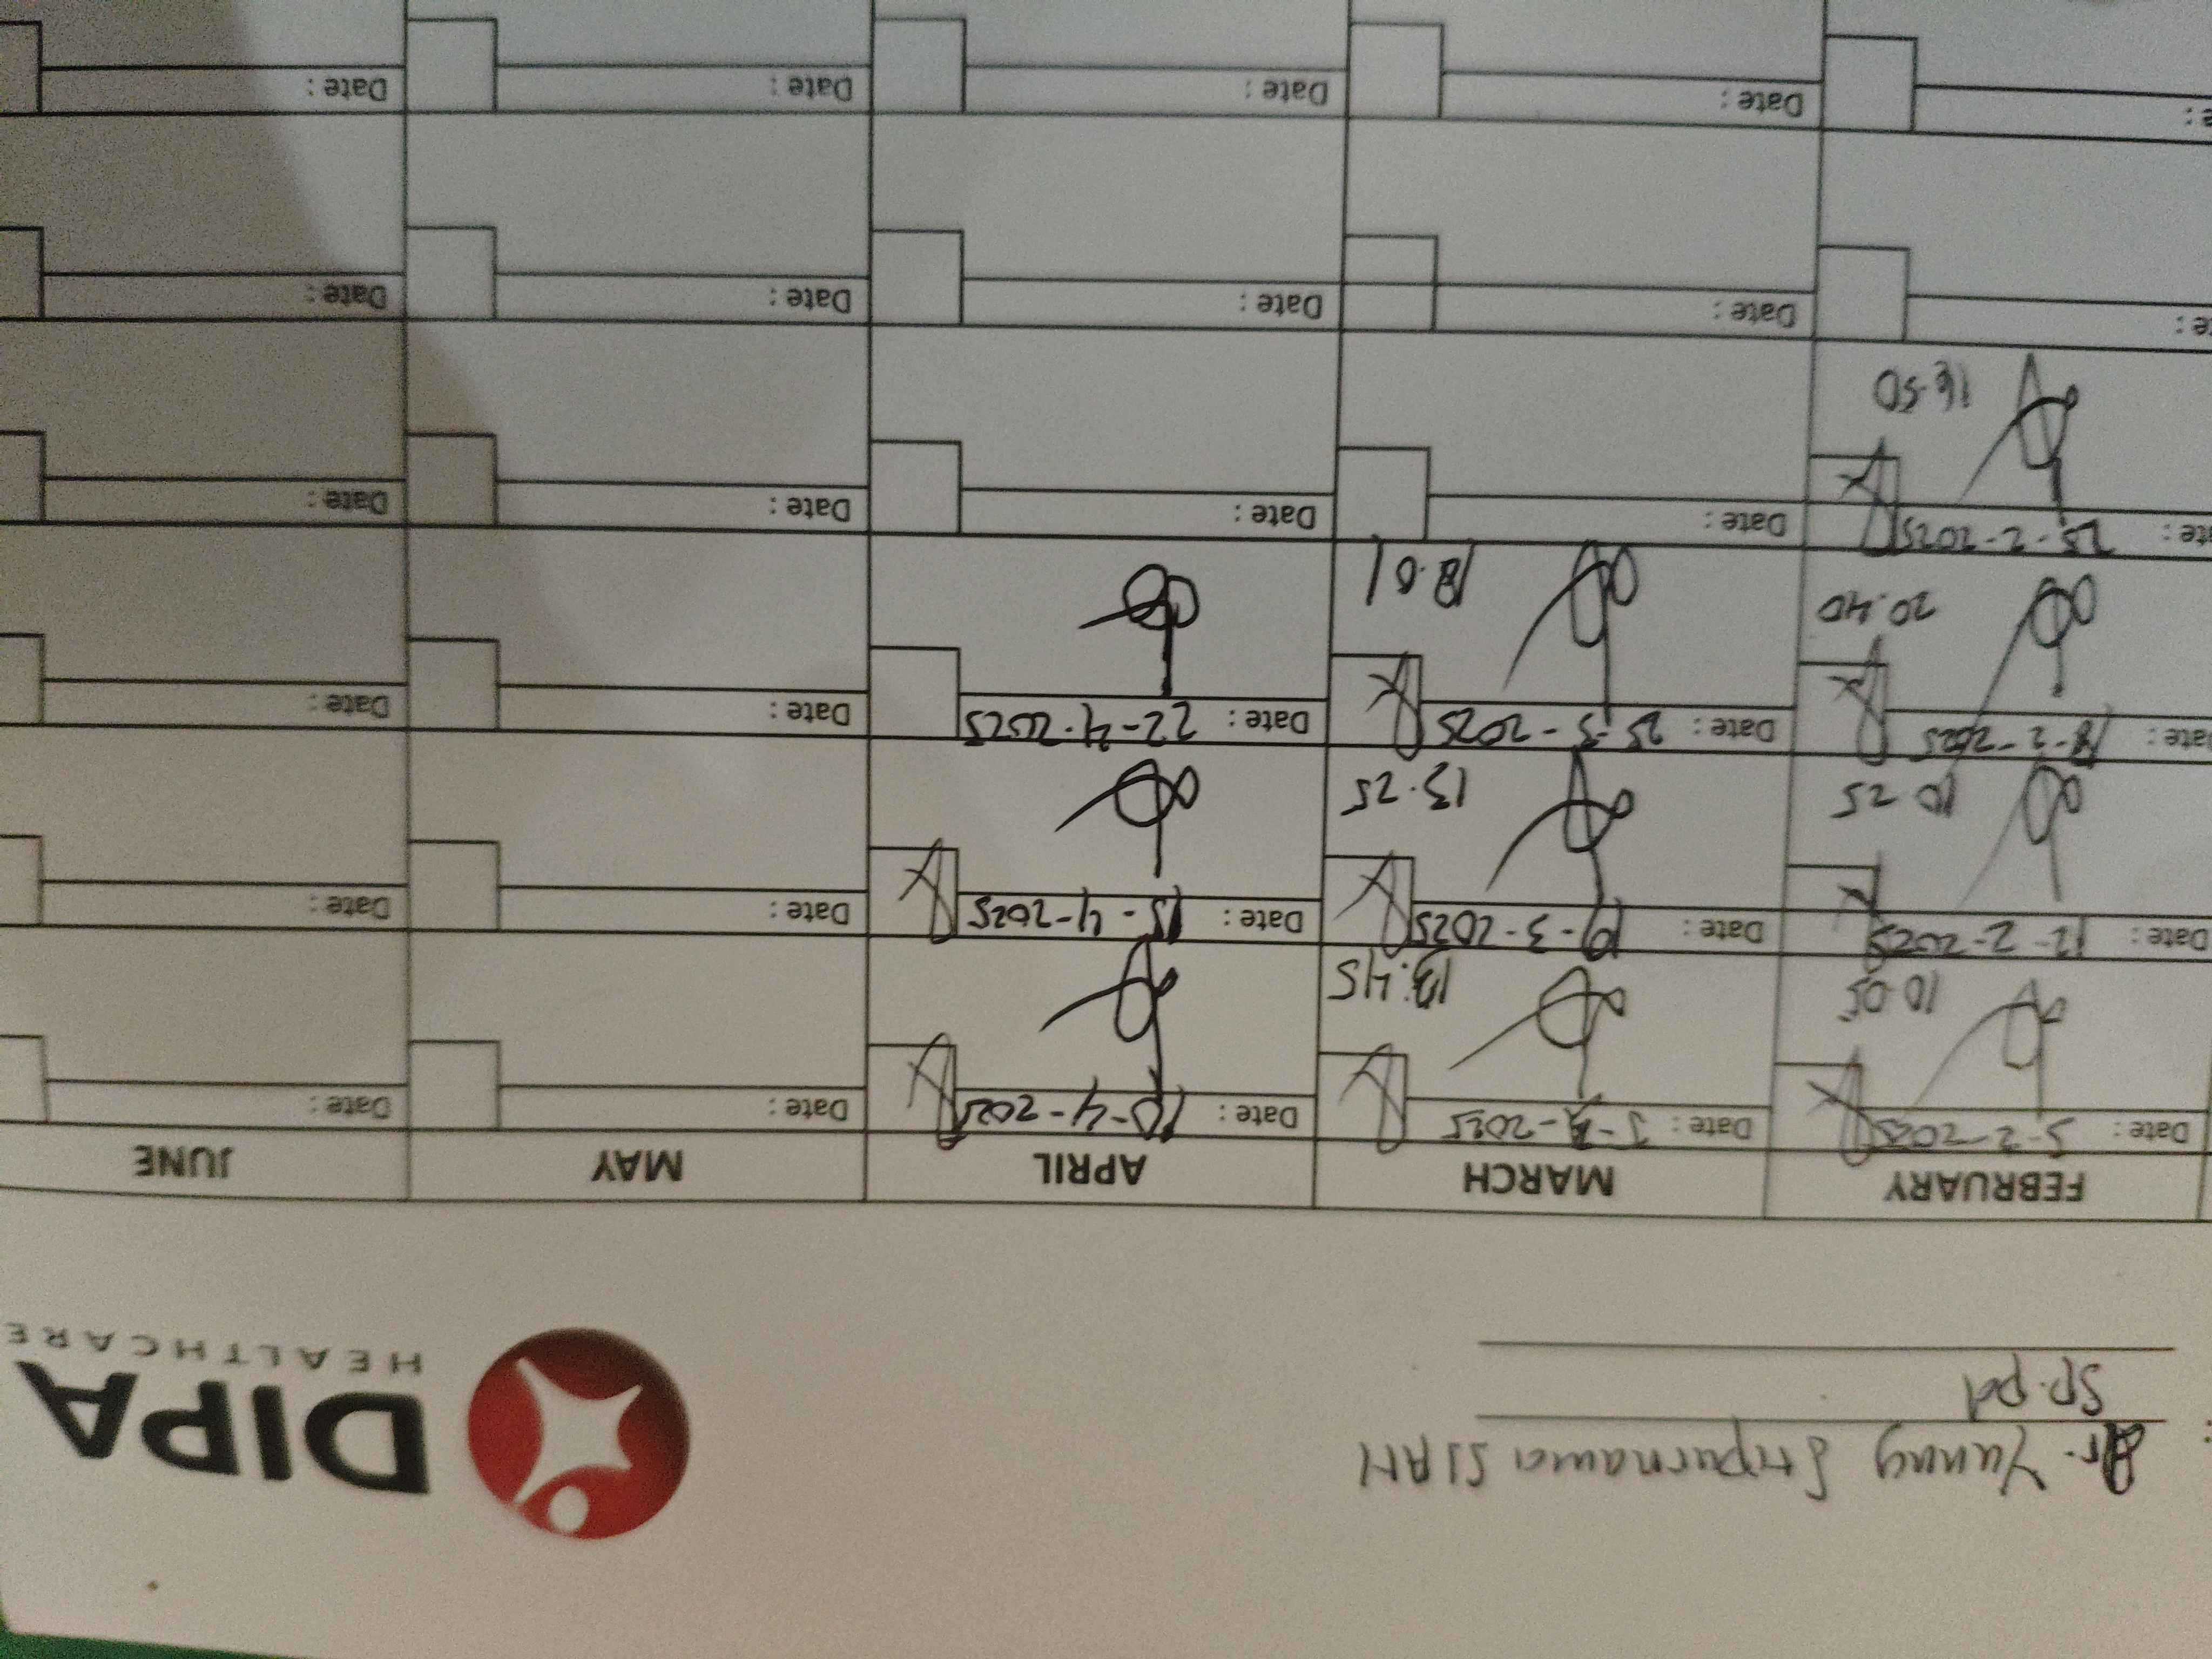 DIPA
HEALTHCARE
Dr. Yanny Sripurnama SIAH
Sp.Pd
FEBRUARY MARCH APRIL MAY JUNE
Date: 5-2-2025 Date: 3-3-2025 Date: 10-4-2025 Date: Date:
10.05 13.45
Date: 12-2-2025 Date: 19-3-2025 Date: 15-4-2025 Date: Date:
10.25 13.25
Date: 18-2-2025 Date: 25-3-2025 Date: 22-4-2025 Date: Date:
20.40 18.01
Date: 25-2-2025 Date: Date: Date: Date:
16.50
Date: Date: Date: Date:
Date: Date: Date: Date: